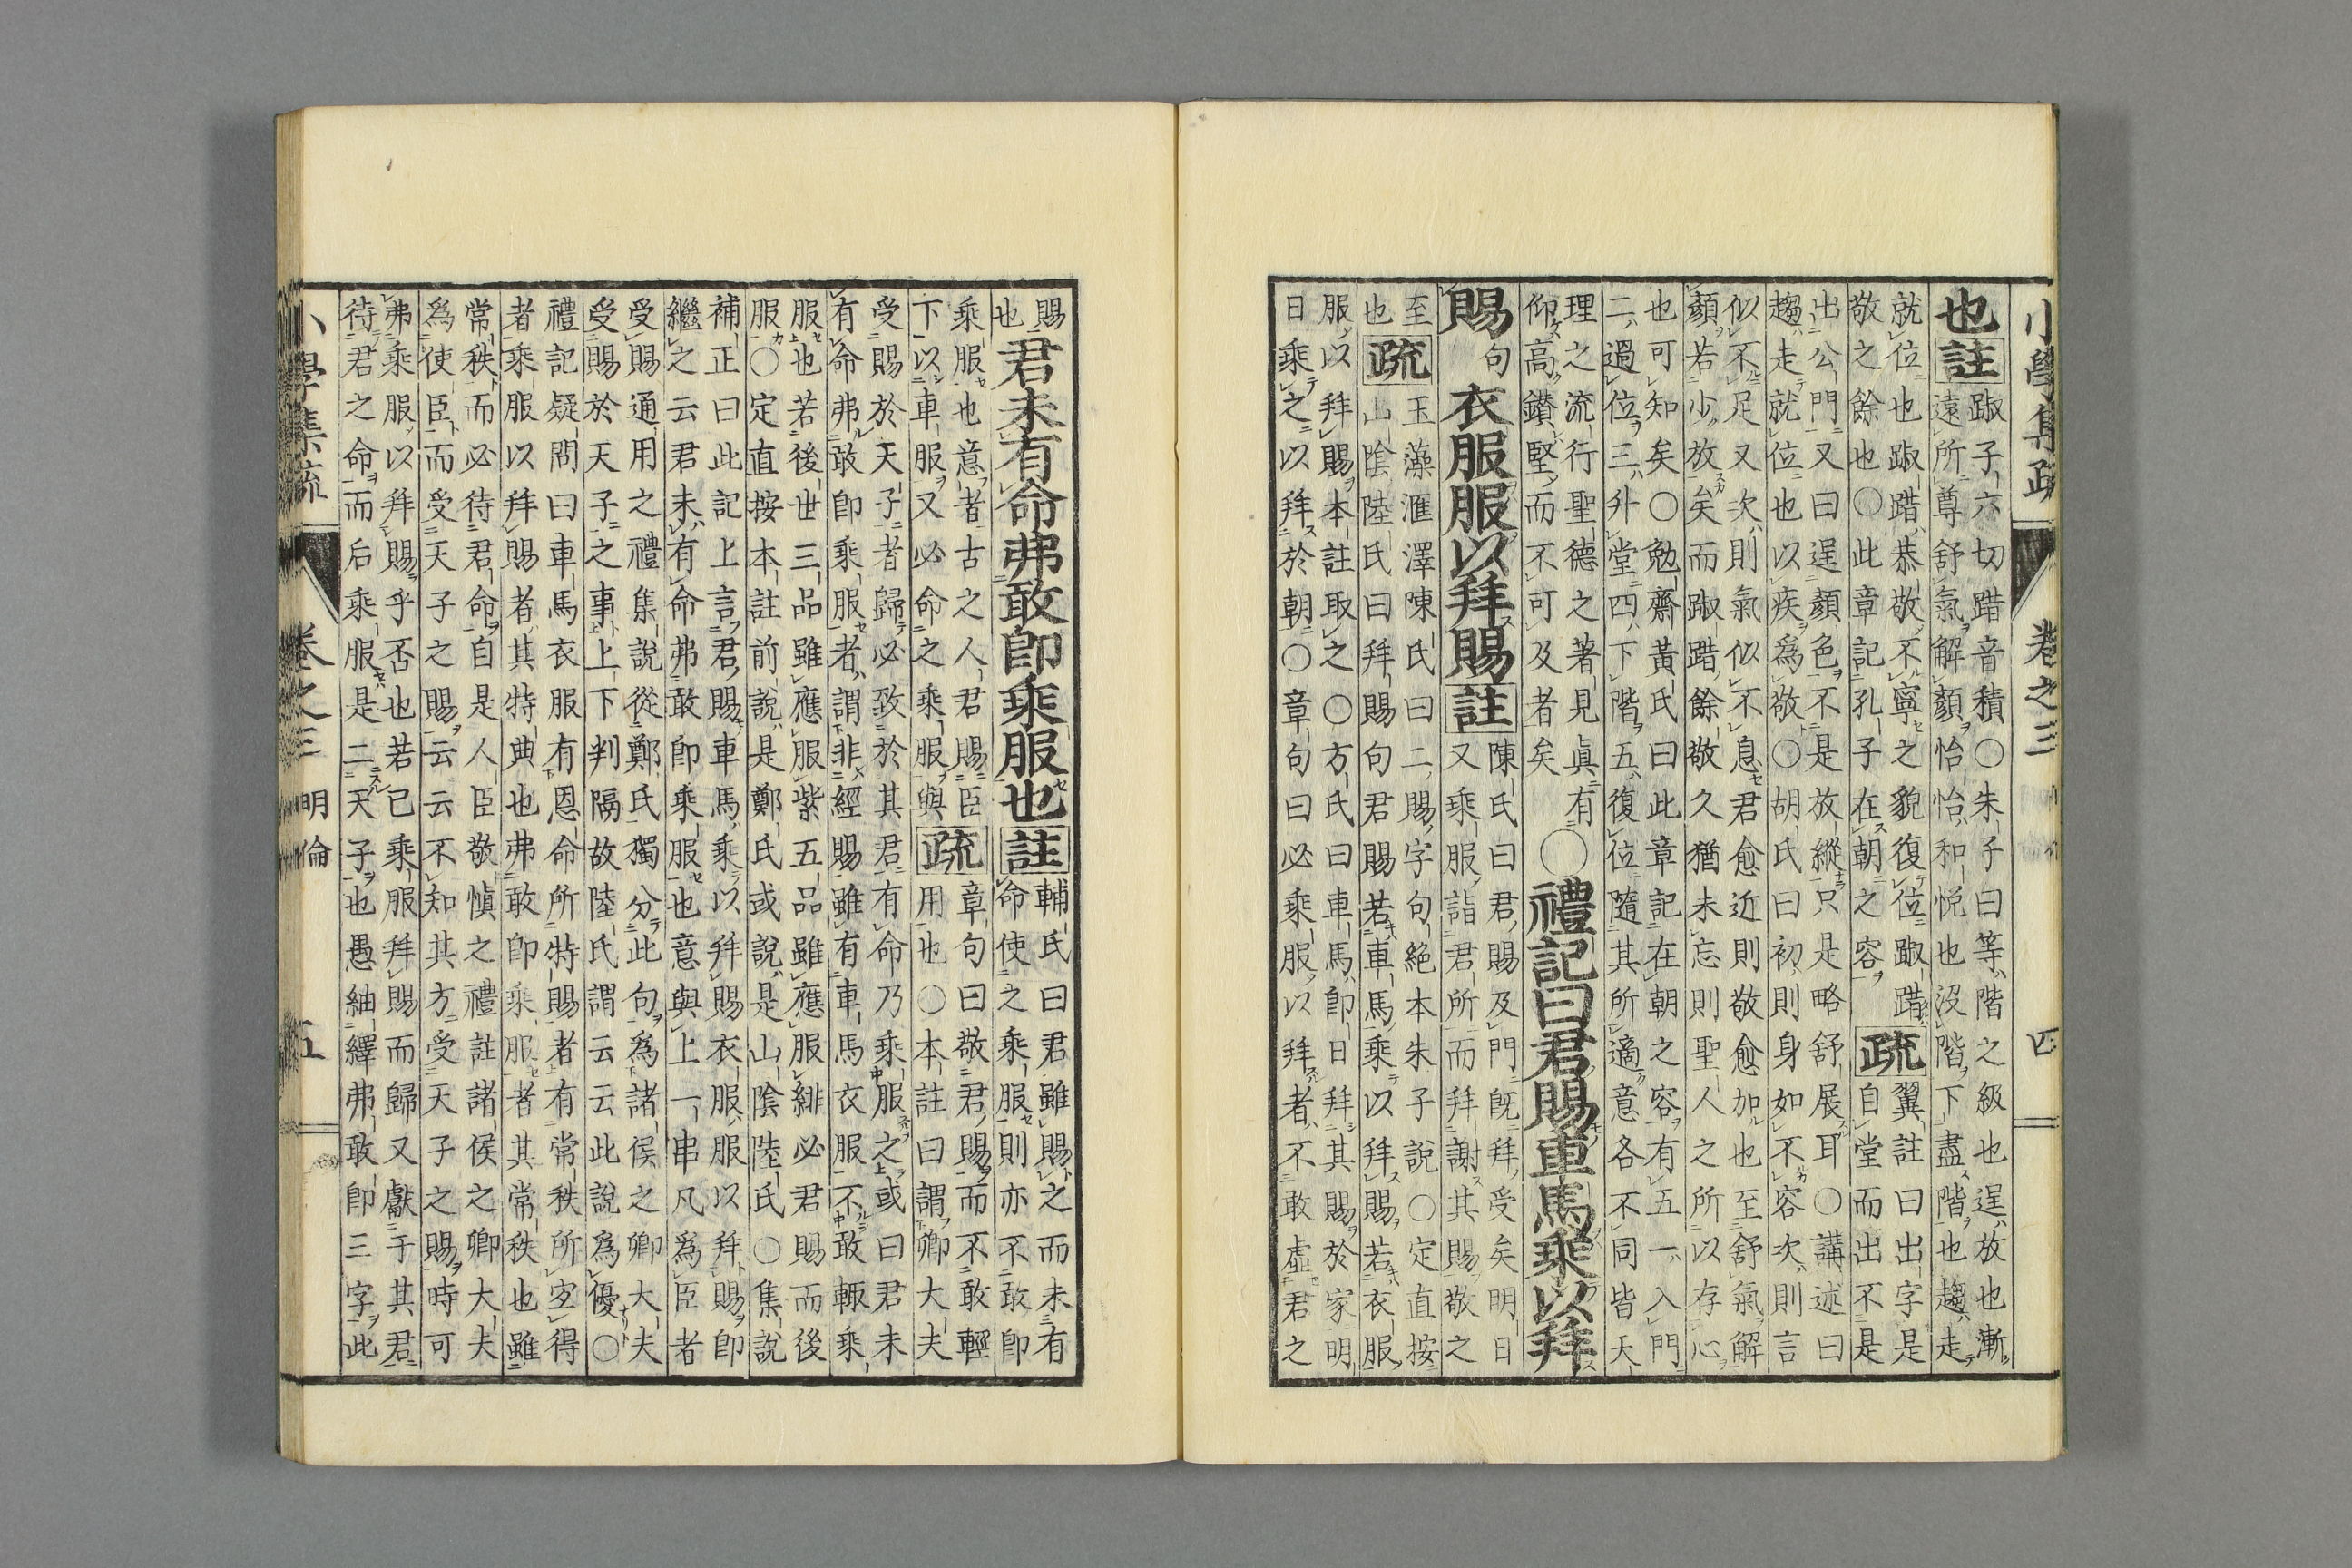 小學集疏 卷之三 四
也 註 踧子六切踖音積○朱子曰等階之級也逞放也漸
遠所尊舒氣解顏怡怡和悦也沒階下盡階也趨走
就位也踧踖恭敬不寧之貌復位踧踖
敬之餘也○此章記孔子在朝之容 疏 翼註曰出字是
自堂而出不是
出公門又曰逞顏色不是放縱只是略舒展耳○講述曰
趨走就位也以疾爲敬○胡氏曰初則身如不容次則言
似不足又次則氣似不息君愈近則敬愈加也至舒氣解
顏若少放矣而踧踖餘敬久猶未忘則聖人之所以存心
也可知矣○勉齋黃氏曰此章記在朝之容有五一入門
二過位三升堂四下階五復位隨其所適意各不同皆天
理之流行聖德之著見眞有
仰高鑽堅而不可及者矣
○禮記曰君賜車馬乘以拜
賜 句 衣服服以拜賜 註 陳氏曰君賜及門既拜受矣明日
又乘服詣君所而拜謝其賜敬之
至
也 疏 玉藻滙澤陳氏曰二賜字句絶本朱子說○定直按
山陰陸氏曰拜賜句君賜若車馬乘以拜賜若衣服
服以拜賜本註取之○方氏曰車馬即日拜其賜於家明
日乘之以拜於朝○章句曰必乘服以拜者不敢虛君之
賜
也 君未有命弗敢即乘服也 註 輔氏曰君雖賜之而未有
命使之乘服則亦不敢即
乘服也意者古之人君賜臣
下以車服又必命之乘服與 疏 章句曰敬君賜而不敢輕
用也○本註曰謂卿大夫
受賜於天子者歸必致於其君有命乃乘服之或曰君未
有命弗敢即乘服者謂非經賜雖有車馬衣服不敢輒乘
服也若後世三品雖應服紫五品雖應服緋必君賜而後
服○定直按本註前說是鄭氏或說是山陰陸氏○集說
補正曰此記上言君賜車馬乘以拜賜衣服服以拜賜即
繼之云君未有命弗敢即乘服也意與上一串凡爲臣者
受賜通用之禮集說從鄭氏獨分此句爲諸侯之卿大夫
受賜於天子之事上下判隔故陸氏謂云云此說爲優○
禮記疑問曰車馬衣服有恩命所特賜者有常秩所宐得
者乘服以拜賜者其特典也弗敢即乘服者其常秩也雖
常秩而必待君命自是人臣敬愼之禮註諸侯之卿大夫
爲使臣而受天子之賜云云不知其方受天子之賜時可
弗乘服以拜賜乎否也若已乘服拜賜而歸又獻于其君
待君之命而后乘服是二天子也愚紬繹弗敢即三字此
小學集疏 卷之三 明倫 五